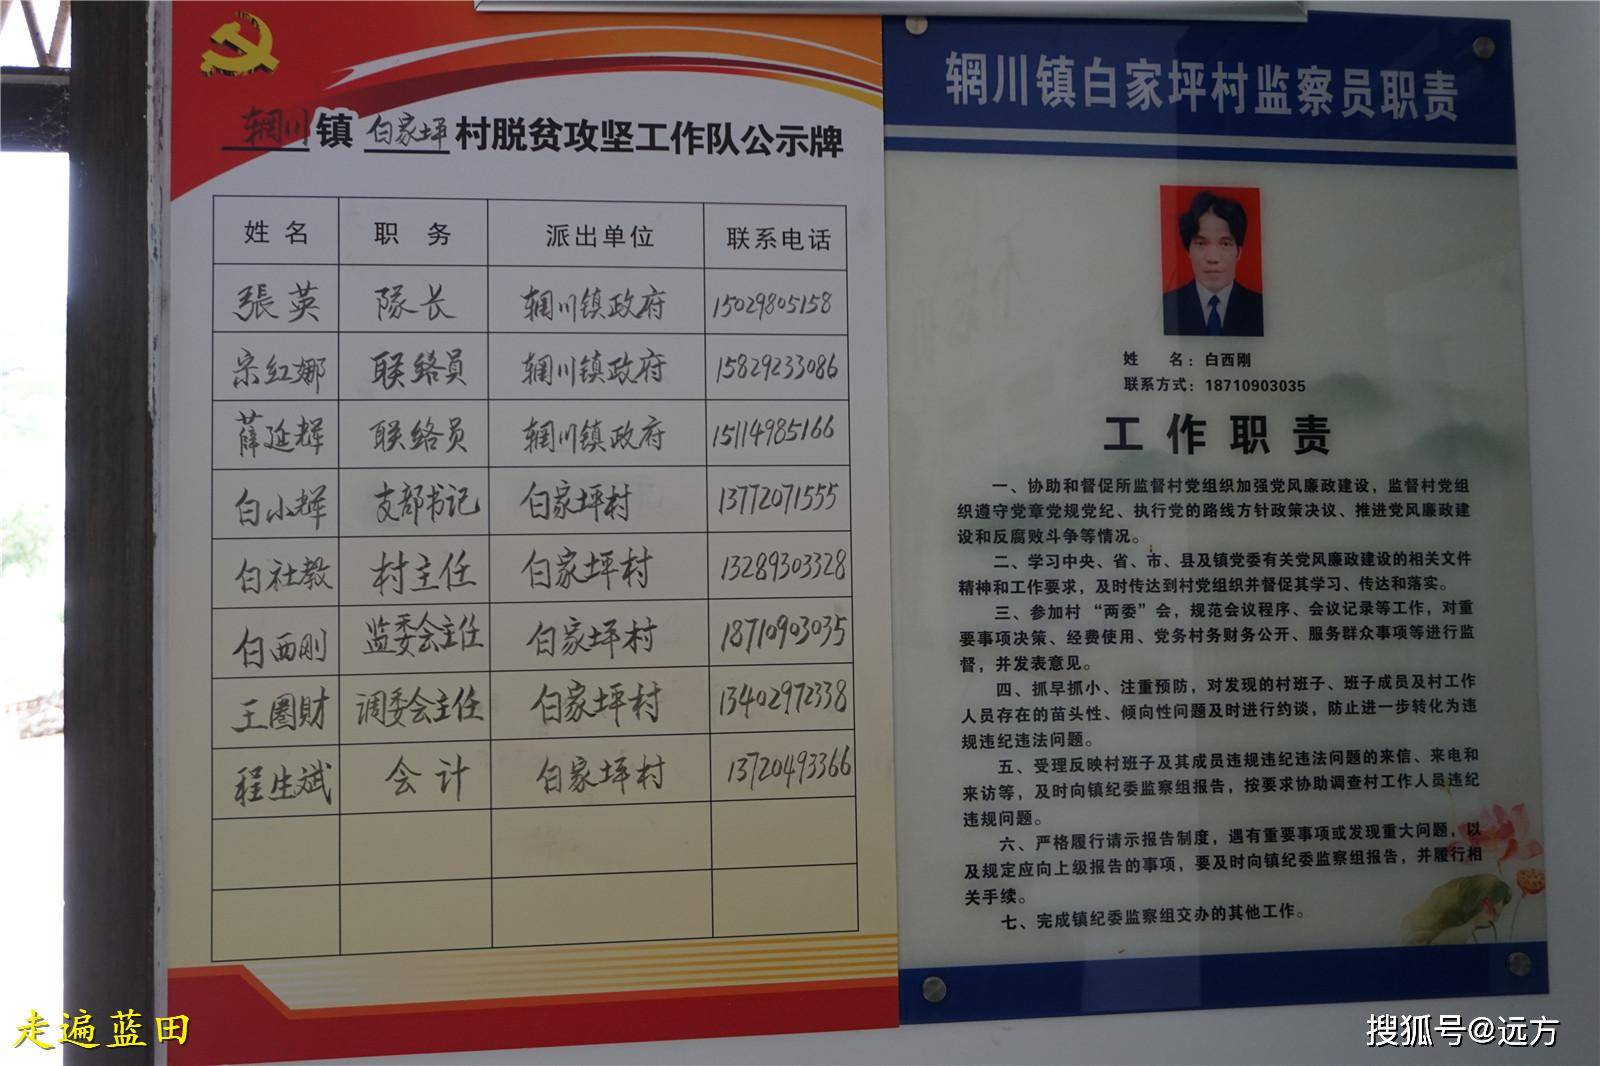 辋川镇 白家坪村脱贫攻坚工作队公示牌
姓名 职务 派出单位 联系电话
張英 隊长 辋川镇政府 15029805158
宗红娜 联络员 辋川镇政府 15829233086
薛延辉 联络员 辋川镇政府 15114985166
白小辉 支部书记 白家坪村 13772071555
白社教 村主任 白家坪村 13289303328
白西刚 监委会主任 白家坪村 18710903035
王圈財 调委会主任 白家坪村 13402972338
程生斌 会计 白家坪村 13720493366
辋川镇白家坪村监察员职责
姓 名：白西刚
联系方式：18710903035
工作职责
一、协助和督促所监督村党组织加强党风廉政建设，监督村党组
织遵守党章党规党纪、执行党的路线方针政策决议、推进党风廉政建
设和反腐败斗争等情况。
二、学习中央、省、市、县及镇党委有关党风廉政建设的相关文件
精神和工作要求，及时传达到村党组织并督促其学习、传达和落实。
三、参加村“两委”会，规范会议程序、会议记录等工作，对重
要事项决策、经费使用、党务村务财务公开、服务群众事项等进行监
督，并发表意见。
四、抓早抓小、注重预防，对发现的村班子、班子成员及村工作
人员存在的苗头性、倾向性问题及时进行约谈，防止进一步转化为违
规违纪违法问题。
五、受理反映村班子及其成员违规违纪违法问题的来信、来电和
来访等，及时向镇纪委监察组报告，按要求协助调查村工作人员违纪
违规问题。
六、严格履行请示报告制度，遇有重要事项或发现重大问题，以
及规定应向上级报告的事项，要及时向镇纪委监察组报告，并履行相
关手续。
七、完成镇纪委监察组交办的其他工作。
走遍蓝田
搜狐号@远方